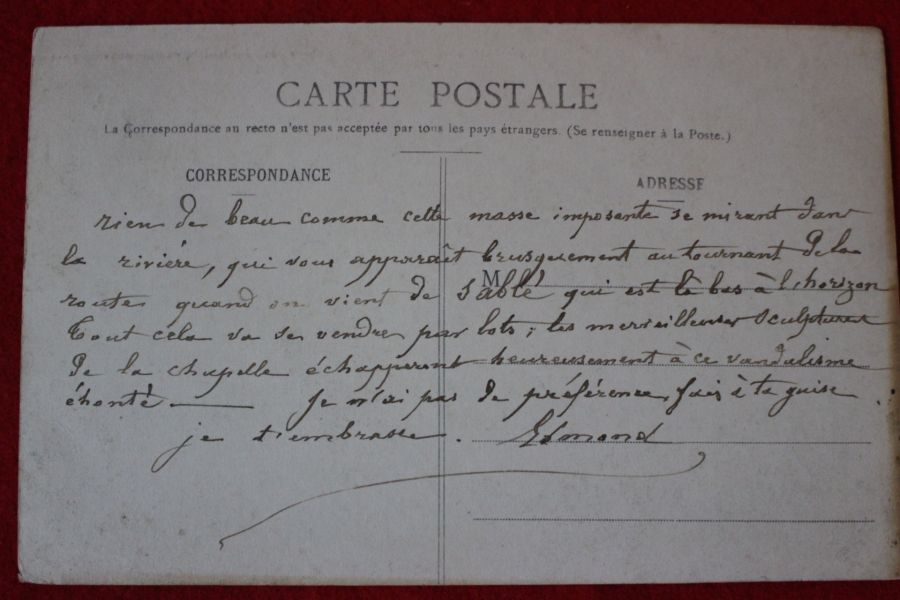 CARTE POSTALE
La Correspondance au recto n'est pas acceptée par tous les pays étrangers. (Se renseigner à la Poste.)
CORRESPONDANCE
ADRESSE
rien de beau comme cette masse imposante se mirant dans
la rivière, qui vous apparaît brusquement au tournant de la
route quand on vient de Sablé qui est là bas à l'horizon
M
Tout cela va se vendre par lots ; les merveilleuses sculptures
de la chapelle échapperont heureusement à ce vandalisme
éhonté — Je n'ai pas de préférence, fais à ta guise.
je t'embrasse. Edmond